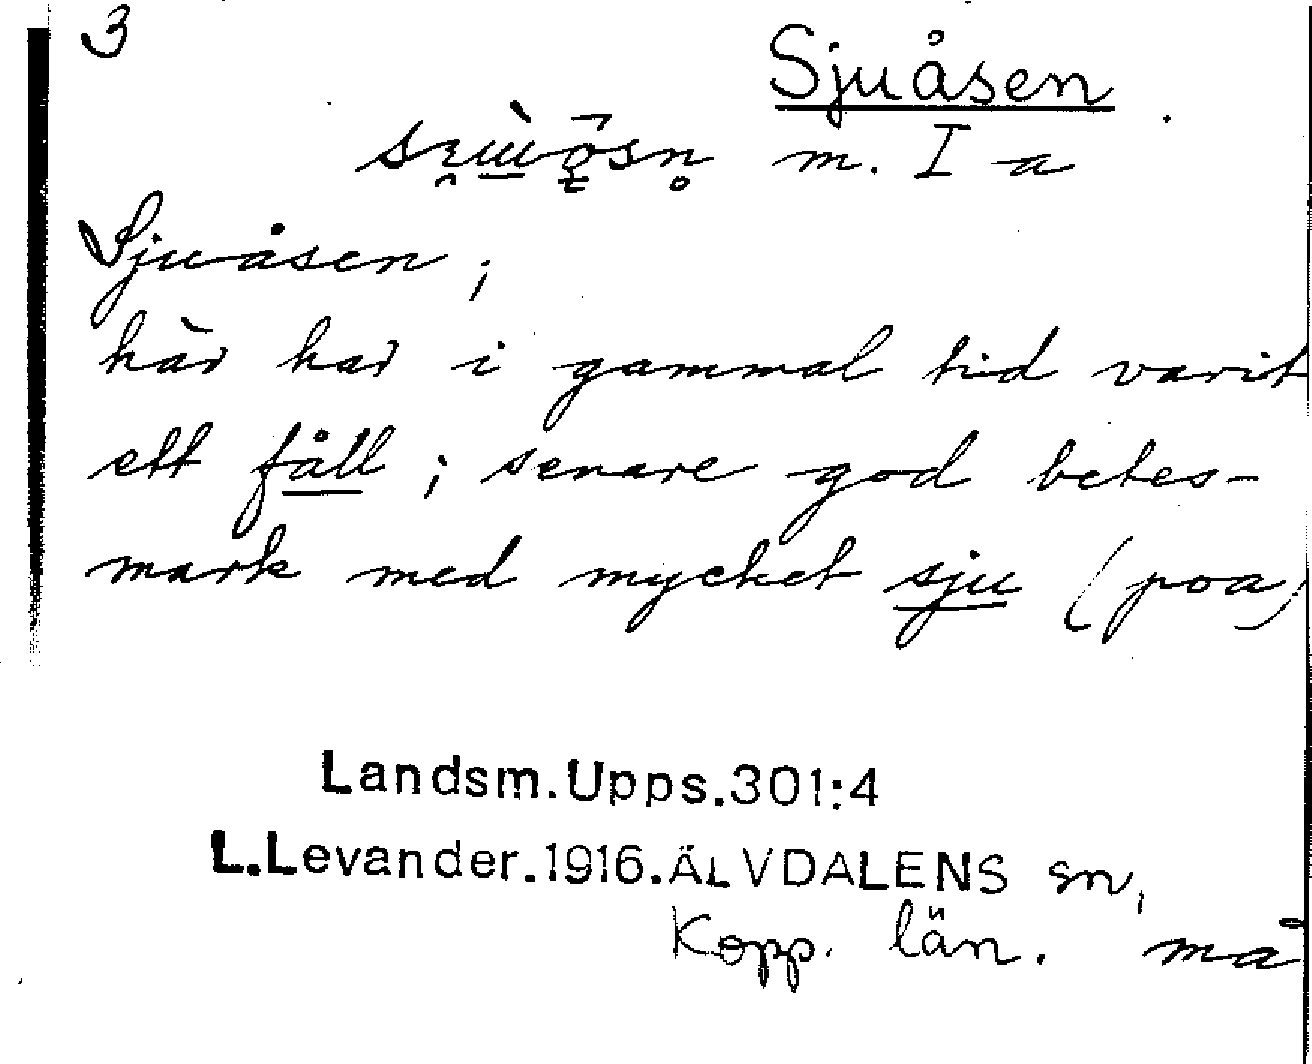 3
Sjuåsen
m. I a
Sjuåsen;
här har i gammal tid varit
ett fåll; senare god betes-
mark med mycket sju (poa)
Landsm.Upps.301:4
L.Levander.1916.ÄLVDALENS sn,
Kopp. län. må